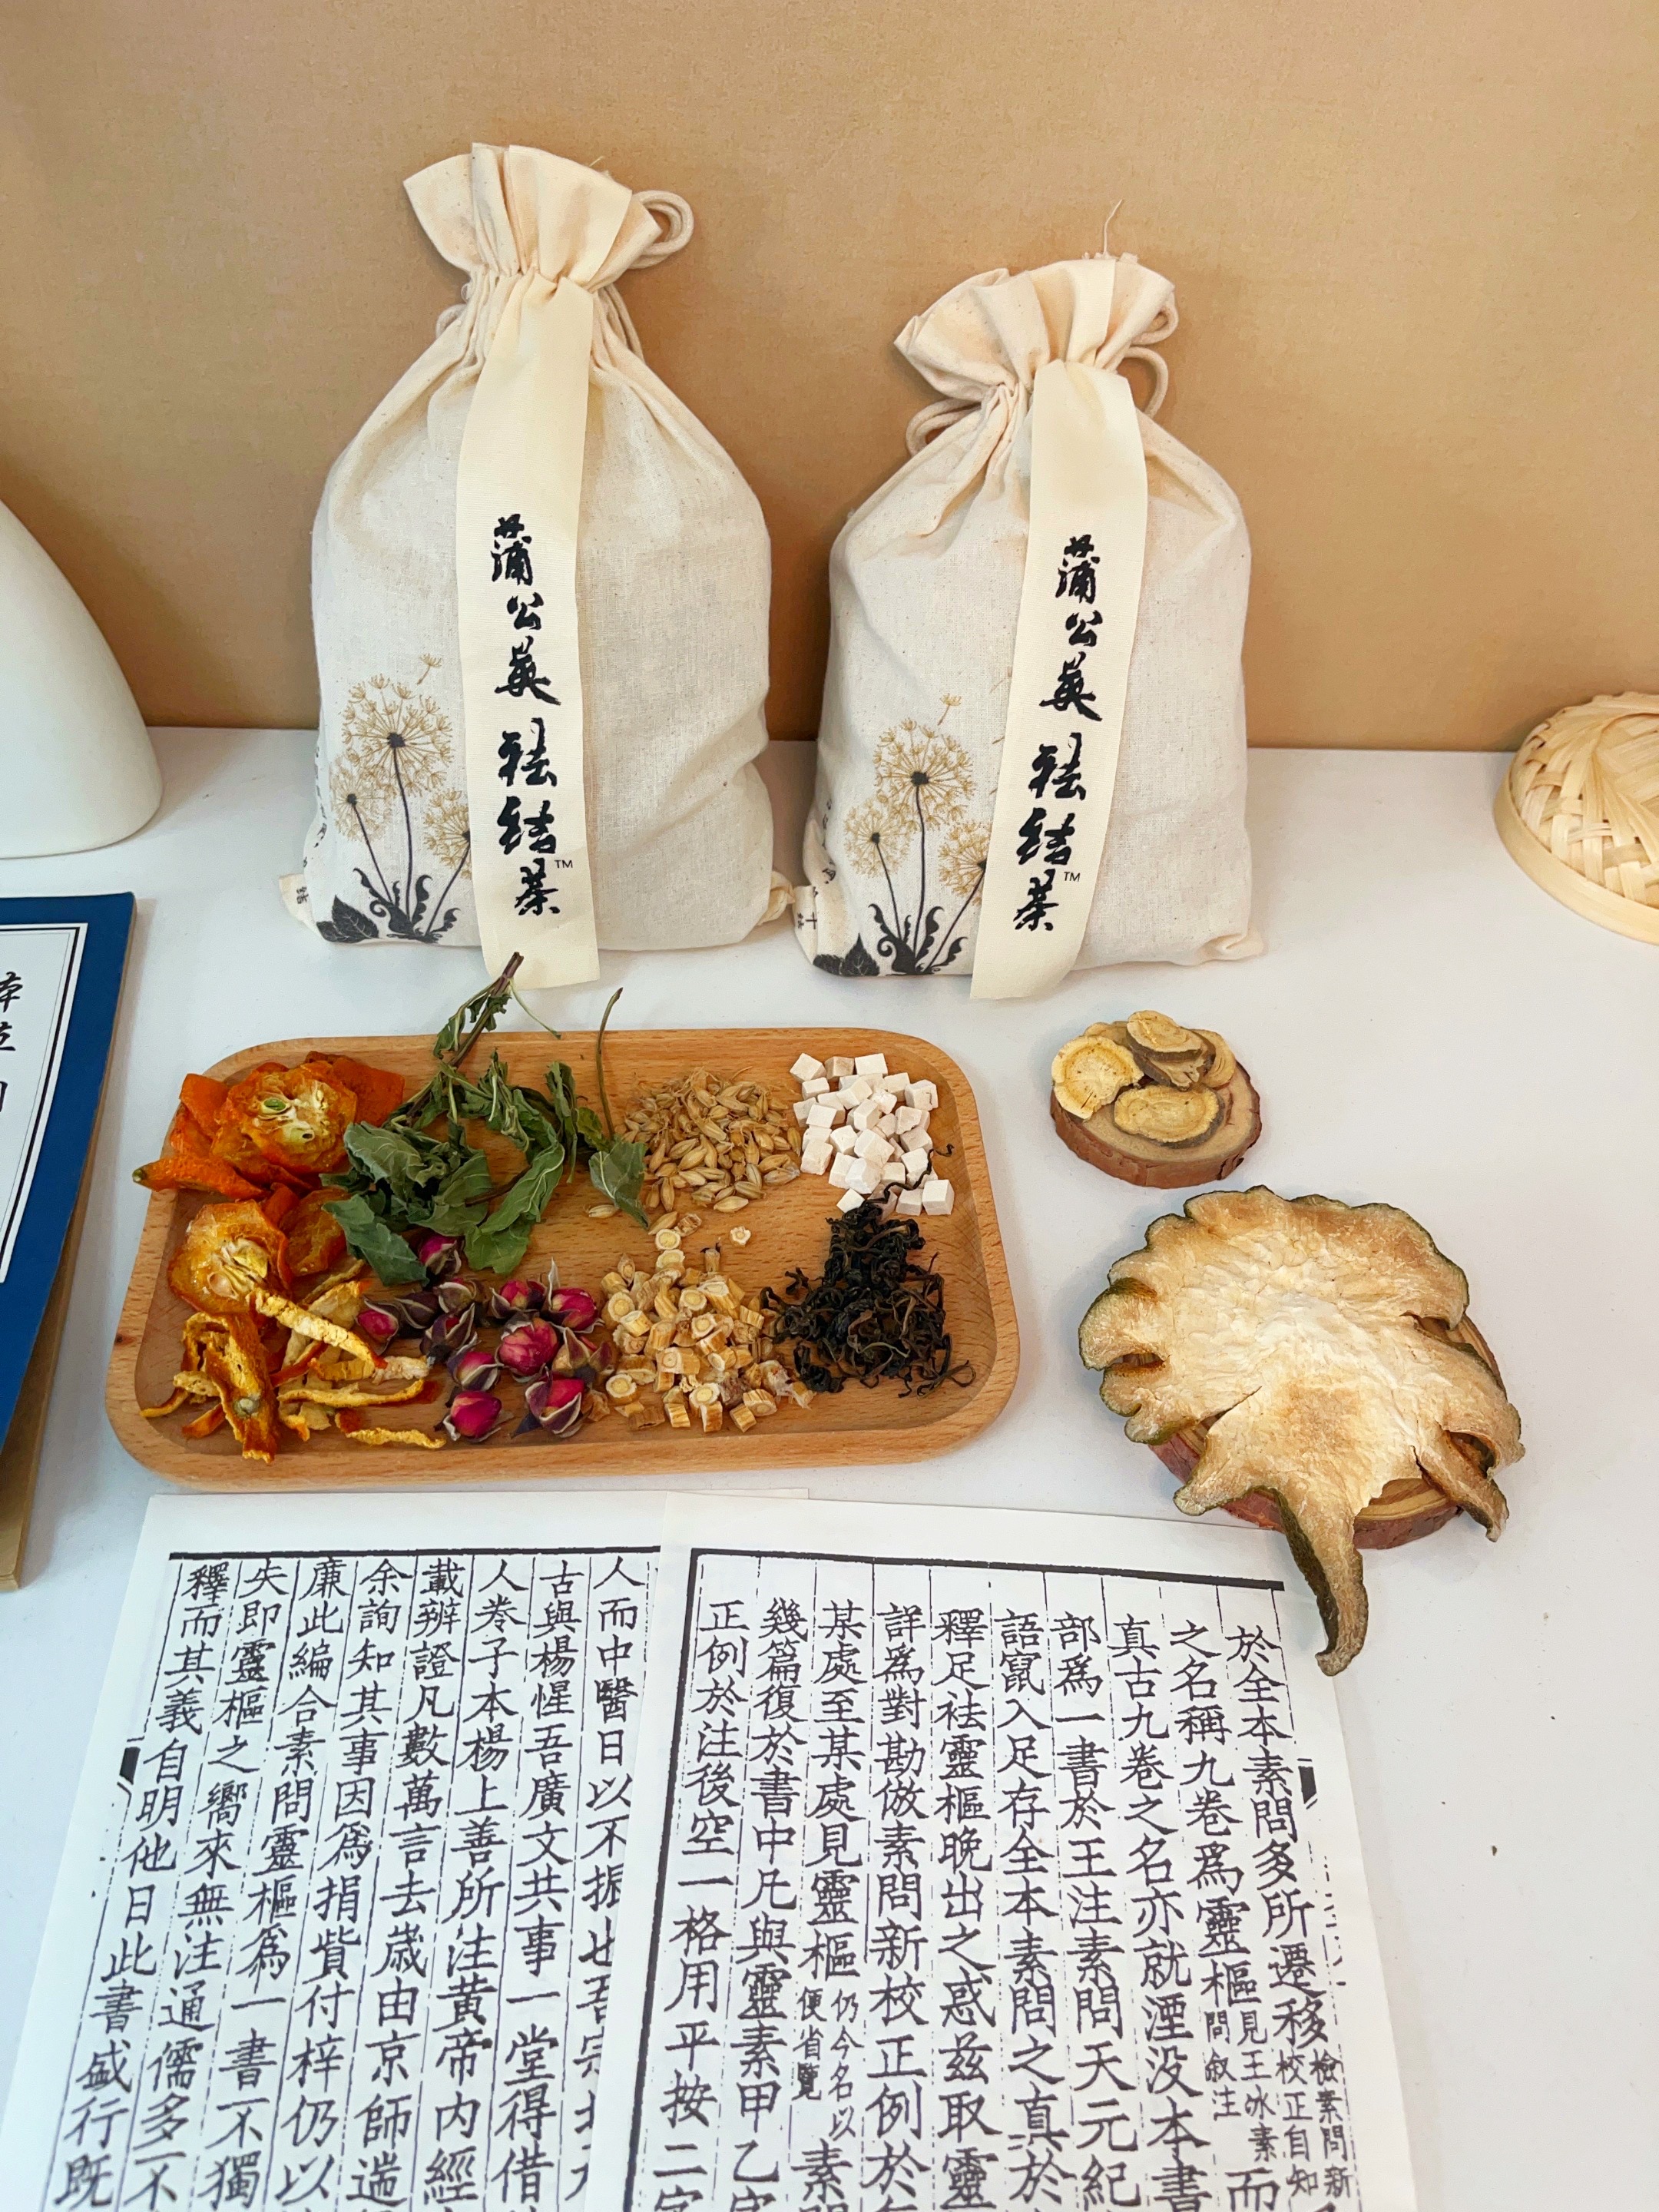 蒲公英祛结茶™
蒲公英祛结茶™
於全本素問多所遷移檢素問新校正自知
之名稱九卷爲靈樞見王冰素問敘注而
真古九卷之名亦就湮没本書
部爲一書於王注素問天元紀
語竄入足存全本素問之真於
釋足祛靈樞晚出之惑兹取靈
詳爲對勘倣素問新校正例於
某處至某處見靈樞仍今名以便省覽素
幾篇復於書中凡與靈素甲乙
正例於注後空一格用平按二
人而中醫日以不振也吾
古與楊惺吾廣文共事一堂得借
人卷子本楊上善所注黃帝內經
載辨證凡數萬言去歲由京師
余詢知其事因爲捐貲付梓仍以
廉此編合素問靈樞爲一書不獨
失即靈樞之嚮來無注通儒多不
釋而其義自明他日此書盛行既